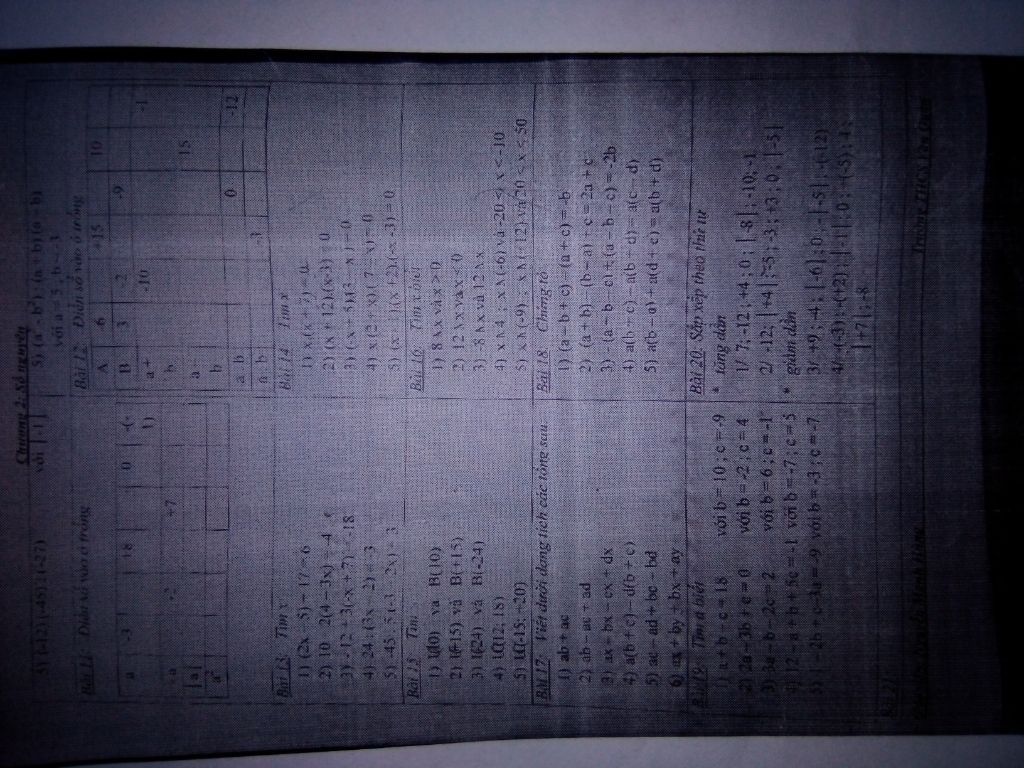 Chương 2: Số nguyên
5) (-12).(-45) : (-27) với | -1|
5) (a - b²) : (a + b) (a – b)
với a = 5 ; b = -3
Bài 11: Điền số vào ô trống
a -3 18 0 -(-1)
- a -2 +7
|a|
a²
Bài 12: Điền số vào ô trống
A -6 +15 10
B 3 -2 -9 -1
a + b -10
a - b 15
a . b 0 -12
a : b -3
Bài 13: Tìm x:
1) (2x – 5) + 17 = 6
2) 10 – 2(4 – 3x) = -4
3) - 12 + 3(-x + 7) = -18
4) 24 : (3x – 2) = -3
5) -45 : 5.(-3 – 2x) = 3
Bài 14: Tìm x
1) x.(x + 7) = 0
2) (x + 12).(x-3) = 0
3) (-x + 5).(3 – x ) = 0
4) x.(2 + x).( 7 – x) = 0
5) (x - 1).(x +2).(-x -3) = 0
Bài 15: Tìm
1) Ư(10) và B(10)
2) Ư(+15) và B(+15)
3) Ư(-24) và B(-24)
4) ƯC(12; 18)
5) ƯC(-15; +20)
Bài 16: Tìm x biết
1) 8 x và x > 0
2) 12 x và x < 0
3) -8 x và 12 x
4) x 4 ; x (-6) và -20 < x < -10
5) x (-9) ; x (+12) và 20 < x < 50
Bài 17: Viết dưới dạng tích các tổng sau:
1) ab + ac
2) ab – ac + ad
3) ax – bx – cx + dx
4) a(b + c) – d(b + c)
5) ac – ad + bc – bd
6) ax + by + bx + ay
Bài 18: Chứng tỏ
1) (a – b + c) – (a + c) = -b
2) (a + b) – (b – a) + c = 2a + c
3) - (a + b – c) + (a – b – c) = -2b
4) a(b + c) – a(b + d) = a(c – d)
5) a(b – c) + a(d + c) = a(b + d)
Bài 19: Tìm a biết
1) a + b – c = 18 với b = 10 ; c = -9
2) 2a – 3b + c = 0 với b = -2 ; c = 4
3) 3a – b – 2c = 2 với b = 6 ; c = -1
4) 12 – a + b + 5c = -1 với b = -7 ; c = 5
5) 1 – 2b + c – 3a = -9 với b = -3 ; c = -7
Bài 20: Sắp xếp theo thứ tự
* tăng dần
1/ 7; -12 ; +4 ; 0 ; | -8| ; -10; -1
2/ -12; | +4| ; -5 ; -3 ; +3 ; 0 ; | -5|
* giảm dần
3/ +9 ; -4 ; | -6| ; 0 ; -| -5| ; -(-12)
4/ -(-3) ; -(+2) ; | -1| ; 0 ; +(-5) ; 4 ;
| +7| ; -8
Bài 21
Trường THCS